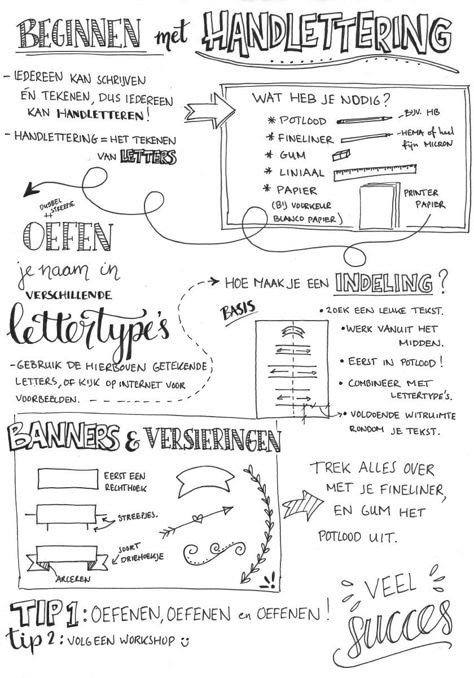 BEGINNEN met HANDLETTERING
- IEDEREEN KAN SCHRIJVEN
ÉN TEKENEN, DUS IEDEREEN
KAN HANDLETTEREN!
- HANDLETTERING = HET TEKENEN
VAN LETTERS
WAT HEB JE NODIG?
* POTLOOD
BIJV. HB
* FINELINER
HEMA of heel
fijn MICRON
* GUM
* LINIAAL
* PAPIER
(BIJ VOORKEUR
BLANCO PAPIER)
PRINTER
PAPIER
DUBBEL
STREEPJE
OEFEN
je naam in
VERSCHILLENDE
lettertype's
- GEBRUIK DE HIERBOVEN GETEKENDE
LETTERS, OF KIJK OP INTERNET VOOR
VOORBEELDEN.
HOE MAAK JE EEN INDELING?
BASIS
• ZOEK EEN LEUKE TEKST.
• WERK VANUIT HET
MIDDEN.
• EERST IN POTLOOD!
• COMBINEER MET
LETTERTYPE'S.
• VOLDOENDE WITRUIMTE
RONDOM JE TEKST.
BANNERS & VERSIERINGEN
EERST EEN
RECHTHOEK
STREEPJES.
SOORT
DRIEHOEKJE
ARCEREN
TREK ALLES OVER
MET JE FINELINER,
EN GUM HET
POTLOOD UIT.
TIP 1: OEFENEN, OEFENEN en OEFENEN!
tip 2: VOLG EEN WORKSHOP
VEEL
succes